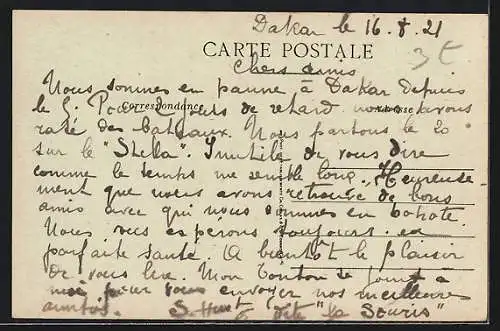 Dakar le 16 . 8 . 21
3€
CARTE POSTALE
Chers amis
Nous sommes en panne à Dakar depuis
le 6. Pour 2 jours de retard nous avons
Correspondance
raté des bateaux. Nous partons le 20
sur le "Stella". Inutile de vous dire
comme le temps me semble long. Heureuse-
ment que nous avons retrouvé de bons
amis avec qui nous sommes en popote.
Nous vous espérons toujours en
parfaite santé. A bientôt le plaisir
de vous lire. Mon tonton se joint à
moi pour vous envoyer nos meilleures
amitiés. dite "la Souris"